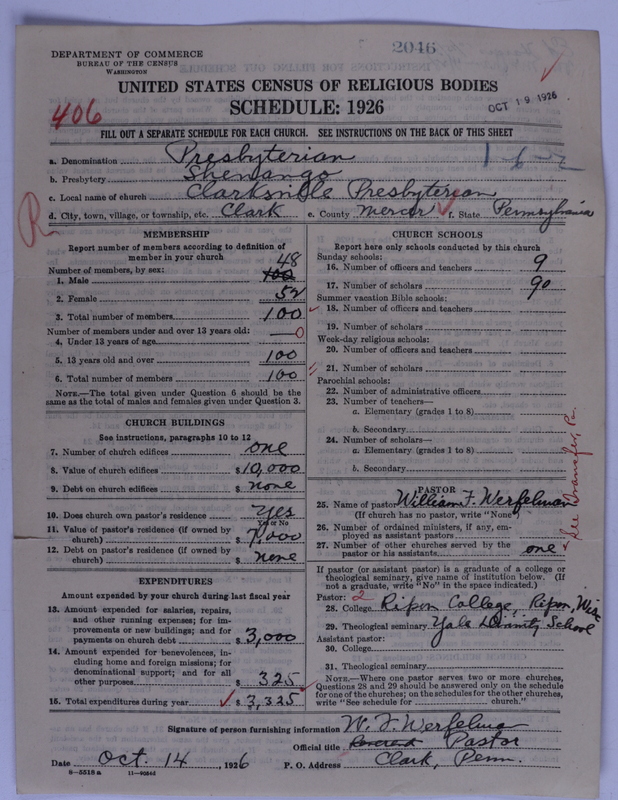 2046
DEPARTMENT OF COMMERCE
BUREAU OF THE CENSUS
WASHINGTON
UNITED STATES CENSUS OF RELIGIOUS BODIES
SCHEDULE: 1926
OCT 19 1926
406
FILL OUT A SEPARATE SCHEDULE FOR EACH CHURCH. SEE INSTRUCTIONS ON THE BACK OF THIS SHEET
a. Denomination Presbyterian
1-6-2
b. Presbytery Shenango
c. Local name of church Clarksville Presbyterian
d. City, town, village, or township, etc. Clark e. County Mercer f. State Pennsylvania
R
MEMBERSHIP
Report number of members according to definition of
member in your church
Number of members, by sex: 48
1. Male 100
2. Female 52
3. Total number of members 100
Number of members under and over 13 years old:
4. Under 13 years of age 0
5. 13 years old and over 100
6. Total number of members 100
NOTE.—The total given under Question 6 should be the
same as the total of males and females given under Question 3.
CHURCH BUILDINGS
See instructions, paragraphs 10 to 12
7. Number of church edifices one
8. Value of church edifices $10,000
9. Debt on church edifices $ none
10. Does church own pastor's residence yes
Yes or No
11. Value of pastor's residence (if owned by
church) $
12. Debt on pastor's residence (if owned by
church) $ none
EXPENDITURES
Amount expended by your church during last fiscal year
13. Amount expended for salaries, repairs,
and other running expenses; for im-
provements or new buildings; and for
payments on church debt $3,000
14. Amount expended for benevolences, in-
cluding home and foreign missions; for
denominational support; and for all
other purposes $ 325
15. Total expenditures during year $3,325
CHURCH SCHOOLS
Report here only schools conducted by this church
Sunday schools:
16. Number of officers and teachers 9
17. Number of scholars 90
Summer vacation Bible schools:
18. Number of officers and teachers
19. Number of scholars
Week-day religious schools:
20. Number of officers and teachers
21. Number of scholars
Parochial schools:
22. Number of administrative officers
23. Number of teachers—
a. Elementary (grades 1 to 8)
b. Secondary
24. Number of scholars—
a. Elementary (grades 1 to 8)
b. Secondary
See Transfer, Pa.
PASTOR
25. Name of pastor William F. Werfelman
(If church has no pastor, write "None")
26. Number of ordained ministers, if any, em-
ployed as assistant pastors
27. Number of other churches served by the
pastor or his assistants one
If pastor (or assistant pastor) is a graduate of a college or
theological seminary, give name of institution below. (If
not a graduate, write "No" in the space indicated.)
Pastor: 2
28. College Ripon College, Ripon, Wis
29. Theological seminary Yale Divinity School
Assistant pastor:
30. College
31. Theological seminary
NOTE.—Where one pastor serves two or more churches,
Questions 28 and 29 should be answered only on the schedule
for one of the churches; on the schedules for the other churches
write "See schedule for church."
Signature of person furnishing information W. F. Werfelman
Official title Reverend Pastor
Date Oct. 14, 1926 P. O. Address Clark, Penn.
8—5518 a